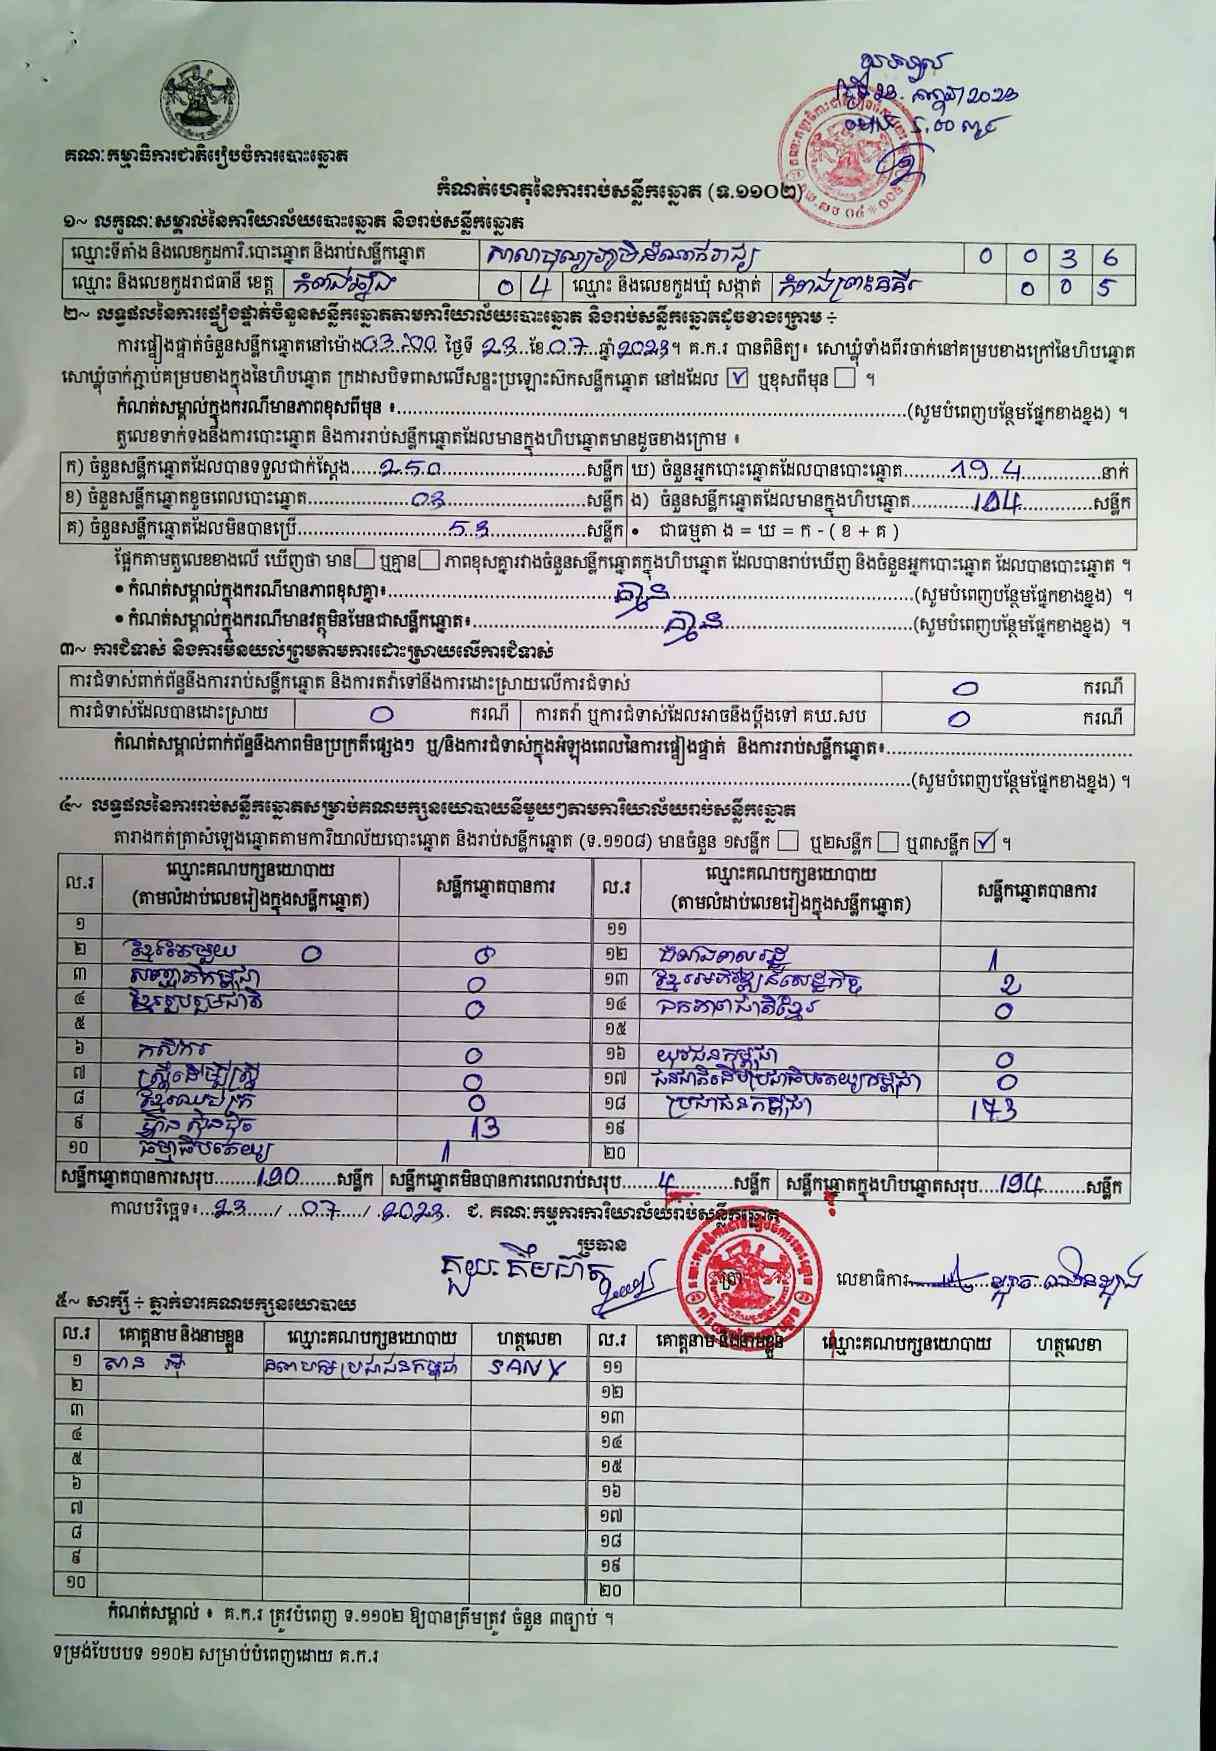 គណៈកម្មាធិការជាតិរៀបចំការបោះឆ្នោត
កំណត់ហេតុនៃការរាប់សន្លឹកឆ្នោត (ទ.១១០២)
១~ លក្ខណៈសម្គាល់នៃការិយាល័យបោះឆ្នោត និងរាប់សន្លឹកឆ្នោត
ឈ្មោះទីតាំង និងលេខកូដការិ.បោះឆ្នោត និងរាប់សន្លឹកឆ្នោត 0 0 3 6
ឈ្មោះ និងលេខកូដរាជធានី ខេត្ត កំពង់ឆ្នាំង 0 4 ឈ្មោះ និងលេខកូដឃុំ សង្កាត់ កំពង់ព្រះគគីរ 0 0 5
២~ លទ្ធផលនៃការផ្ទៀងផ្ទាត់ចំនួនសន្លឹកឆ្នោតតាមការិយាល័យបោះឆ្នោត និងរាប់សន្លឹកឆ្នោតដូចខាងក្រោម ÷
ការផ្ទៀងផ្ទាត់ចំនួនសន្លឹកឆ្នោតនៅម៉ោង 03:00 ថ្ងៃទី 23 ខែ 07 ឆ្នាំ 2023 ។ គ.ក.រ បានពិនិត្យ៖ សោឃ្លុំទាំងពីរចាក់នៅគម្របខាងក្រៅនៃហិបឆ្នោត
សោឃ្លុំចាក់ភ្ជាប់គម្របខាងក្នុងនៃហិបឆ្នោត ក្រដាសបិទពាសលើសន្ទះប្រឡោះស៊កសន្លឹកឆ្នោត នៅដដែល ☑ ឬខុសពីមុន ☐ ។
កំណត់សម្គាល់ក្នុងករណីមានភាពខុសពីមុន ៖ (សូមបំពេញបន្ថែមផ្នែកខាងខ្នង) ។
តួលេខទាក់ទងនឹងការបោះឆ្នោត និងការរាប់សន្លឹកឆ្នោតដែលមានក្នុងហិបឆ្នោតមានដូចខាងក្រោម ៖
ក) ចំនួនសន្លឹកឆ្នោតដែលបានទទួលជាក់ស្តែង 250 សន្លឹក ឃ) ចំនួនអ្នកបោះឆ្នោតដែលបានបោះឆ្នោត 194 នាក់
ខ) ចំនួនសន្លឹកឆ្នោតខូចពេលបោះឆ្នោត 03 សន្លឹក ង) ចំនួនសន្លឹកឆ្នោតដែលមានក្នុងហិបឆ្នោត 194 សន្លឹក
គ) ចំនួនសន្លឹកឆ្នោតដែលមិនបានប្រើ 53 សន្លឹក • ជាធម្មតា ង = ឃ = ក - ( ខ + គ )
ផ្អែកតាមតួលេខខាងលើ ឃើញថា មាន ☐ ឬគ្មាន ☐ ភាពខុសគ្នារវាងចំនួនសន្លឹកឆ្នោតក្នុងហិបឆ្នោត ដែលបានរាប់ឃើញ និងចំនួនអ្នកបោះឆ្នោត ដែលបានបោះឆ្នោត ។
• កំណត់សម្គាល់ក្នុងករណីមានភាពខុសគ្នា៖ គ្មាន (សូមបំពេញបន្ថែមផ្នែកខាងខ្នង) ។
• កំណត់សម្គាល់ក្នុងករណីមានវត្ថុមិនមែនជាសន្លឹកឆ្នោត៖ គ្មាន (សូមបំពេញបន្ថែមផ្នែកខាងខ្នង) ។
៣~ ការជំទាស់ និងការមិនយល់ព្រមតាមការដោះស្រាយលើការជំទាស់
ការជំទាស់ពាក់ព័ន្ធនឹងការរាប់សន្លឹកឆ្នោត និងការតវ៉ាទៅនឹងការដោះស្រាយលើការជំទាស់ 0 ករណី
ការជំទាស់ដែលបានដោះស្រាយ 0 ករណី ការតវ៉ា ឬការជំទាស់ដែលអាចនឹងប្តឹងទៅ គឃ.សប 0 ករណី
កំណត់សម្គាល់ពាក់ព័ន្ធនឹងភាពមិនប្រក្រតីផ្សេងៗ ឬ/និងការជំទាស់ក្នុងអំឡុងពេលនៃការផ្ទៀងផ្ទាត់ និងការរាប់សន្លឹកឆ្នោត៖
(សូមបំពេញបន្ថែមផ្នែកខាងខ្នង) ។
៤~ លទ្ធផលនៃការរាប់សន្លឹកឆ្នោតសម្រាប់គណបក្សនយោបាយនីមួយៗតាមការិយាល័យរាប់សន្លឹកឆ្នោត
តារាងកត់ត្រាសំឡេងឆ្នោតតាមការិយាល័យបោះឆ្នោត និងរាប់សន្លឹកឆ្នោត (ទ.១១០៨) មានចំនួន ១សន្លឹក ☐ ឬ២សន្លឹក ☐ ឬ៣សន្លឹក ☑ ។
ល.រ ឈ្មោះគណបក្សនយោបាយ (តាមលំដាប់លេខរៀងក្នុងសន្លឹកឆ្នោត) សន្លឹកឆ្នោតបានការ ល.រ ឈ្មោះគណបក្សនយោបាយ (តាមលំដាប់លេខរៀងក្នុងសន្លឹកឆ្នោត) សន្លឹកឆ្នោតបានការ
១ ១១
២ ខ្មែរតែមួយ 0 0 ១២ 1
៣ 0 ១៣ ខ្មែរអភិវឌ្ឍន៍សេដ្ឋកិច្ច 2
៤ ខ្មែររួបរួមជាតិ 0 ១៤ ឯកភាពជាតិខ្មែរ 0
៥ ១៥
៦ កសិករ 0 ១៦ យុវជនកម្ពុជា 0
៧ ស្ត្រីដើម្បីស្ត្រី 0 ១៧ ជនជាតិដើមប្រជាធិបតេយ្យកម្ពុជា 0
៨ 0 ១៨ ប្រជាជនកម្ពុជា 173
៩ ហ៊្វុនស៊ិនប៉ិច 13 ១៩
១០ ធម្មាធិបតេយ្យ 1 ២០
សន្លឹកឆ្នោតបានការសរុប 190 សន្លឹក សន្លឹកឆ្នោតមិនបានការពេលរាប់សរុប 4 សន្លឹក សន្លឹកឆ្នោតក្នុងហិបឆ្នោតសរុប 194 សន្លឹក
កាលបរិច្ឆេទ៖ 23 / 07 / 2023 ជ. គណៈកម្មការការិយាល័យរាប់សន្លឹកឆ្នោត
ប្រធាន
លេខាធិការ
៥~ សាក្សី ÷ ភ្នាក់ងារគណបក្សនយោបាយ
ល.រ គោត្តនាម និងនាមខ្លួន ឈ្មោះគណបក្សនយោបាយ ហត្ថលេខា ល.រ គោត្តនាម និងនាមខ្លួន ឈ្មោះគណបក្សនយោបាយ ហត្ថលេខា
១ សាន គណបក្សប្រជាជនកម្ពុជា SANY ១១
២ ១២
៣ ១៣
៤ ១៤
៥ ១៥
៦ ១៦
៧ ១៧
៨ ១៨
៩ ១៩
១០ ២០
កំណត់សម្គាល់ ៖ គ.ក.រ ត្រូវបំពេញ ទ.១១០២ ឱ្យបានត្រឹមត្រូវ ចំនួន ៣ច្បាប់ ។
ទម្រង់បែបបទ ១១០២ សម្រាប់បំពេញដោយ គ.ក.រ